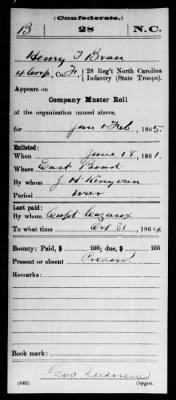 (Confederate.)
B 28 N.C.
Henry T Bran
4 Corp, Co. F, 28 Reg't North Carolina
Infantry (State Troops).
Appears on
Company Muster Roll
of the organization named above,
for Jan & Feb, 1865.
Enlisted:
When June 18, 1861.
Where East Bend
By whom J. H. Kinyoun
Period War
Last paid:
By whom Capt
To what time Oct 31, 1864
Bounty: Paid, $ 100; due, $ 100
Present or absent Present
Remarks:
Book mark:
Geo
(642) Copyist.